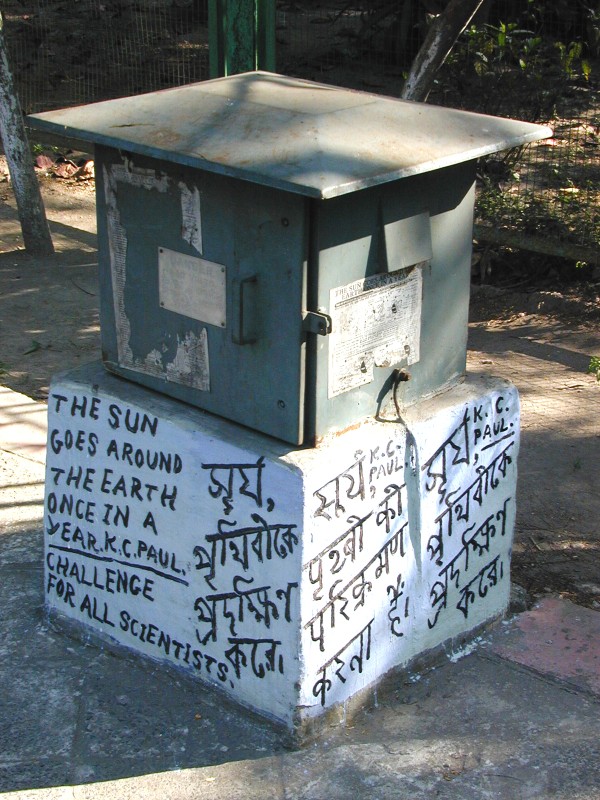 THE SUN
GOES AROUND
THE EARTH
ONCE IN A
YEAR. K.C. PAUL.
CHALLENGE
FOR ALL SCIENTISTS.
সূর্য,
পৃথিবীকে
প্রদক্ষিণ
করে।
सूर्य K.C.
PAUL.
पृथ्वी की
परिक्रमण
करता हैं.
সূর্য, K.C.
PAUL.
পৃথিবীকে
প্রদক্ষিণ
করে।
THE SUN